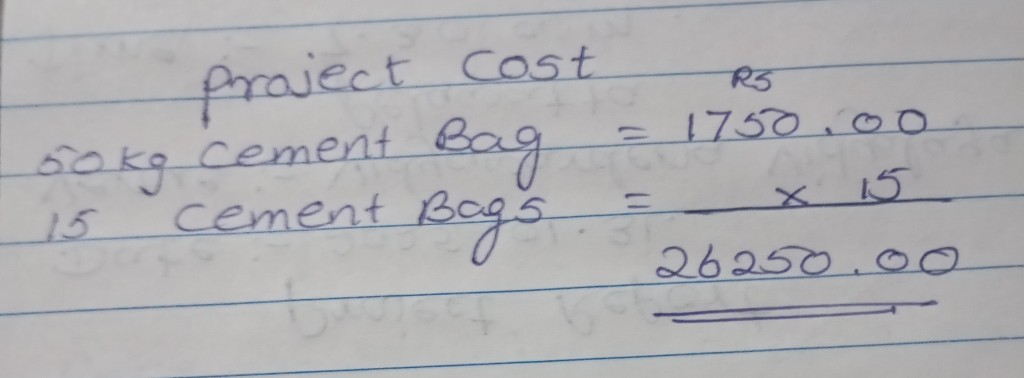 Project Cost
RS
50kg Cement Bag = 1750.00
15 Cement Bags = x 15
26250.00